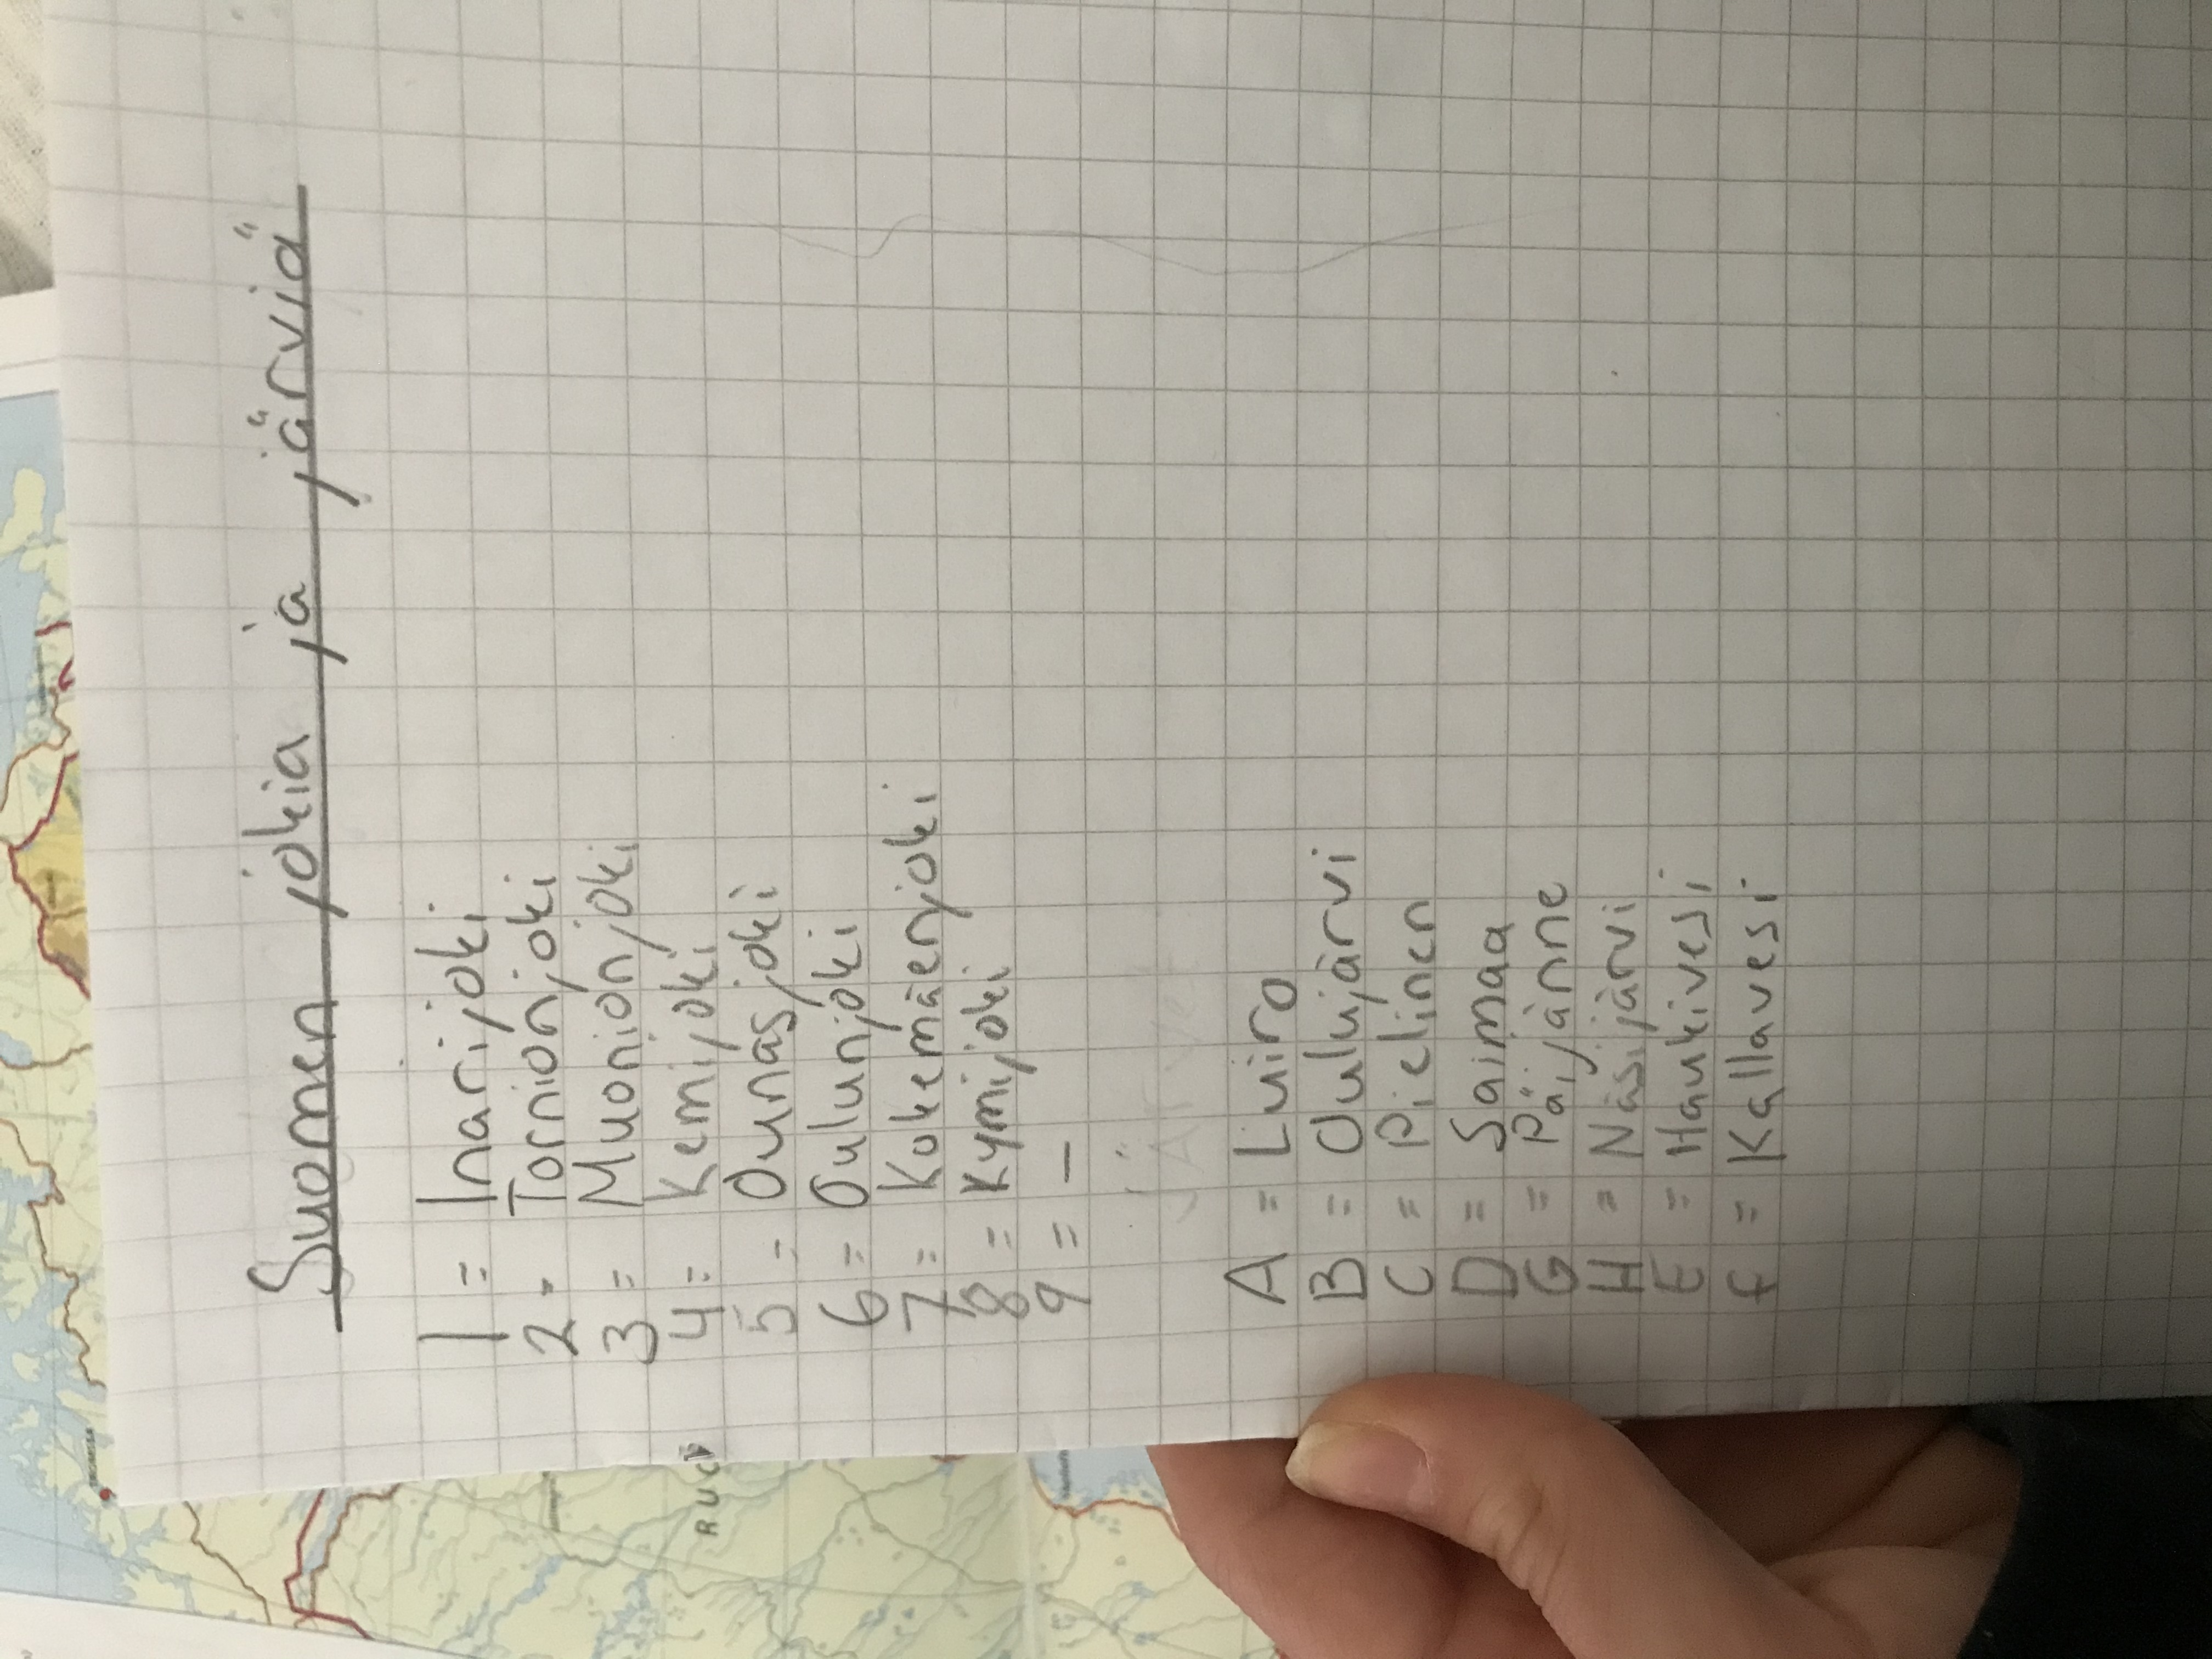 Suomen jokia ja järviä
1 = Inarijoki
2 = Tornionjoki
3 = Muonionjoki
4 = Kemijoki
5 = Ounasjoki
6 = Oulunjoki
7 = Kokemäenjoki
8 = Kymijoki
9 = –
A = Luiro
B = Oulujärvi
C = Pielinen
D = Saimaa
G = Päijänne
H = Näsijärvi
E = Haukivesi
F = Kallavesi